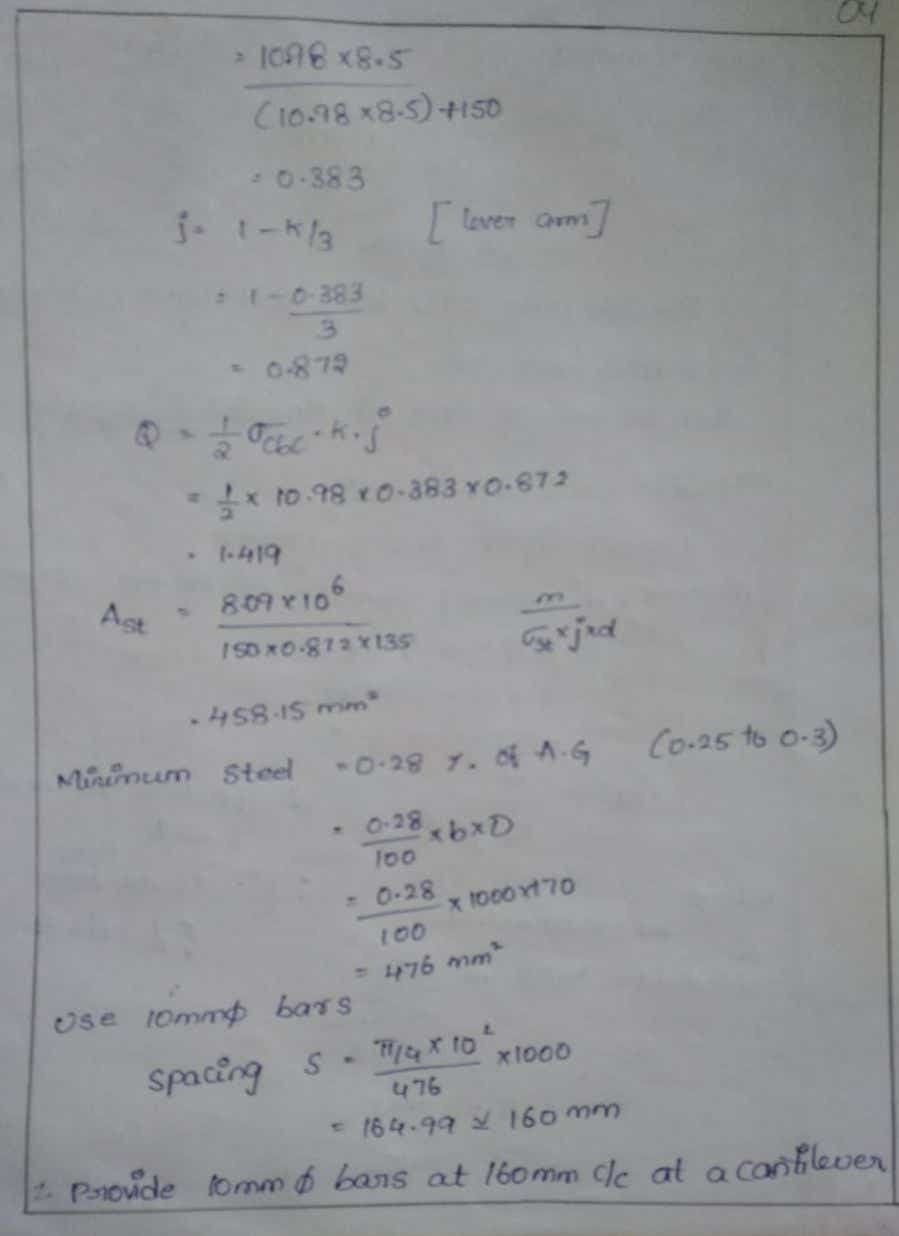 04
= 10.98 x 8.5
(10.98 x 8.5) + 150
= 0.383
j = 1 - k/3 [lever arm]
= 1 - 0.383
3
= 0.872
Q = 1/2 σcbc . k . j
= 1/2 x 10.98 x 0.383 x 0.872
= 1.419
Ast = 8.09 x 10⁶ m
150 x 0.872 x 135 σst x j x d
= 458.15 mm²
Minimum Steel = 0.28 %. of A.G (0.25 to 0.3)
= 0.28 x b x D
100
= 0.28 x 1000 x 170
100
= 476 mm²
Use 10mmϕ bars
Spacing S = π/4 x 10² x 1000
476
= 164.99 ≃ 160 mm
∴ Provide 10mm ϕ bars at 160mm c/c at a cantilever